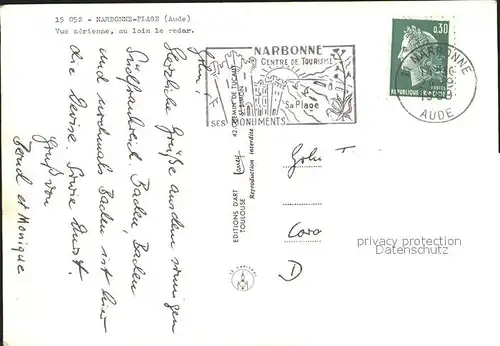 15 052 - NARBONNE-PLAGE (Aude)
Vue aérienne, au loin le radar.
Herzliche Grüße aus dem sonnigen
Südfrankreich. Baden, Baden
und nochmals Baden ist hier
die Devise. Sowie Durst.
Gruß von
Bernd et Monique
NARBONNE
CENTRE DE TOURISME
Sa Plage
SES MONUMENTS
EDITIONS D'ART
TOULOUSE
42, CHEMIN DE
Reproduction interdite
0,30
REPUBLIQUE FRANÇAISE
NARBONNE
AUDE
D
privacy protection
Datenschutz